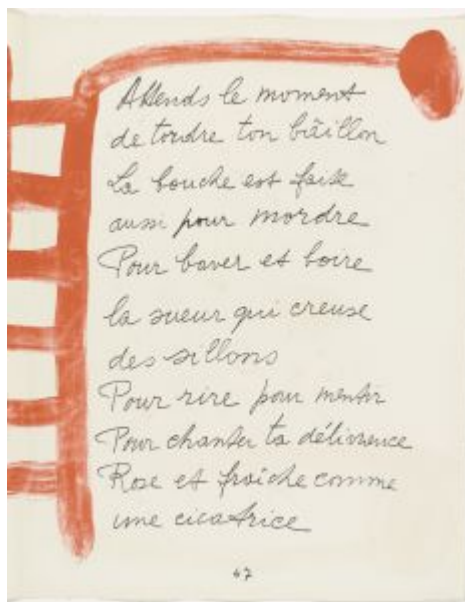 Attends le moment
de tordre ton bâillon
La bouche est faite
aussi pour mordre
Pour baver et boire
la sueur qui creuse
des sillons
Pour rire pour mentir
Pour chanter ta délivrence
Rose et fraîche comme
une cicatrice
47